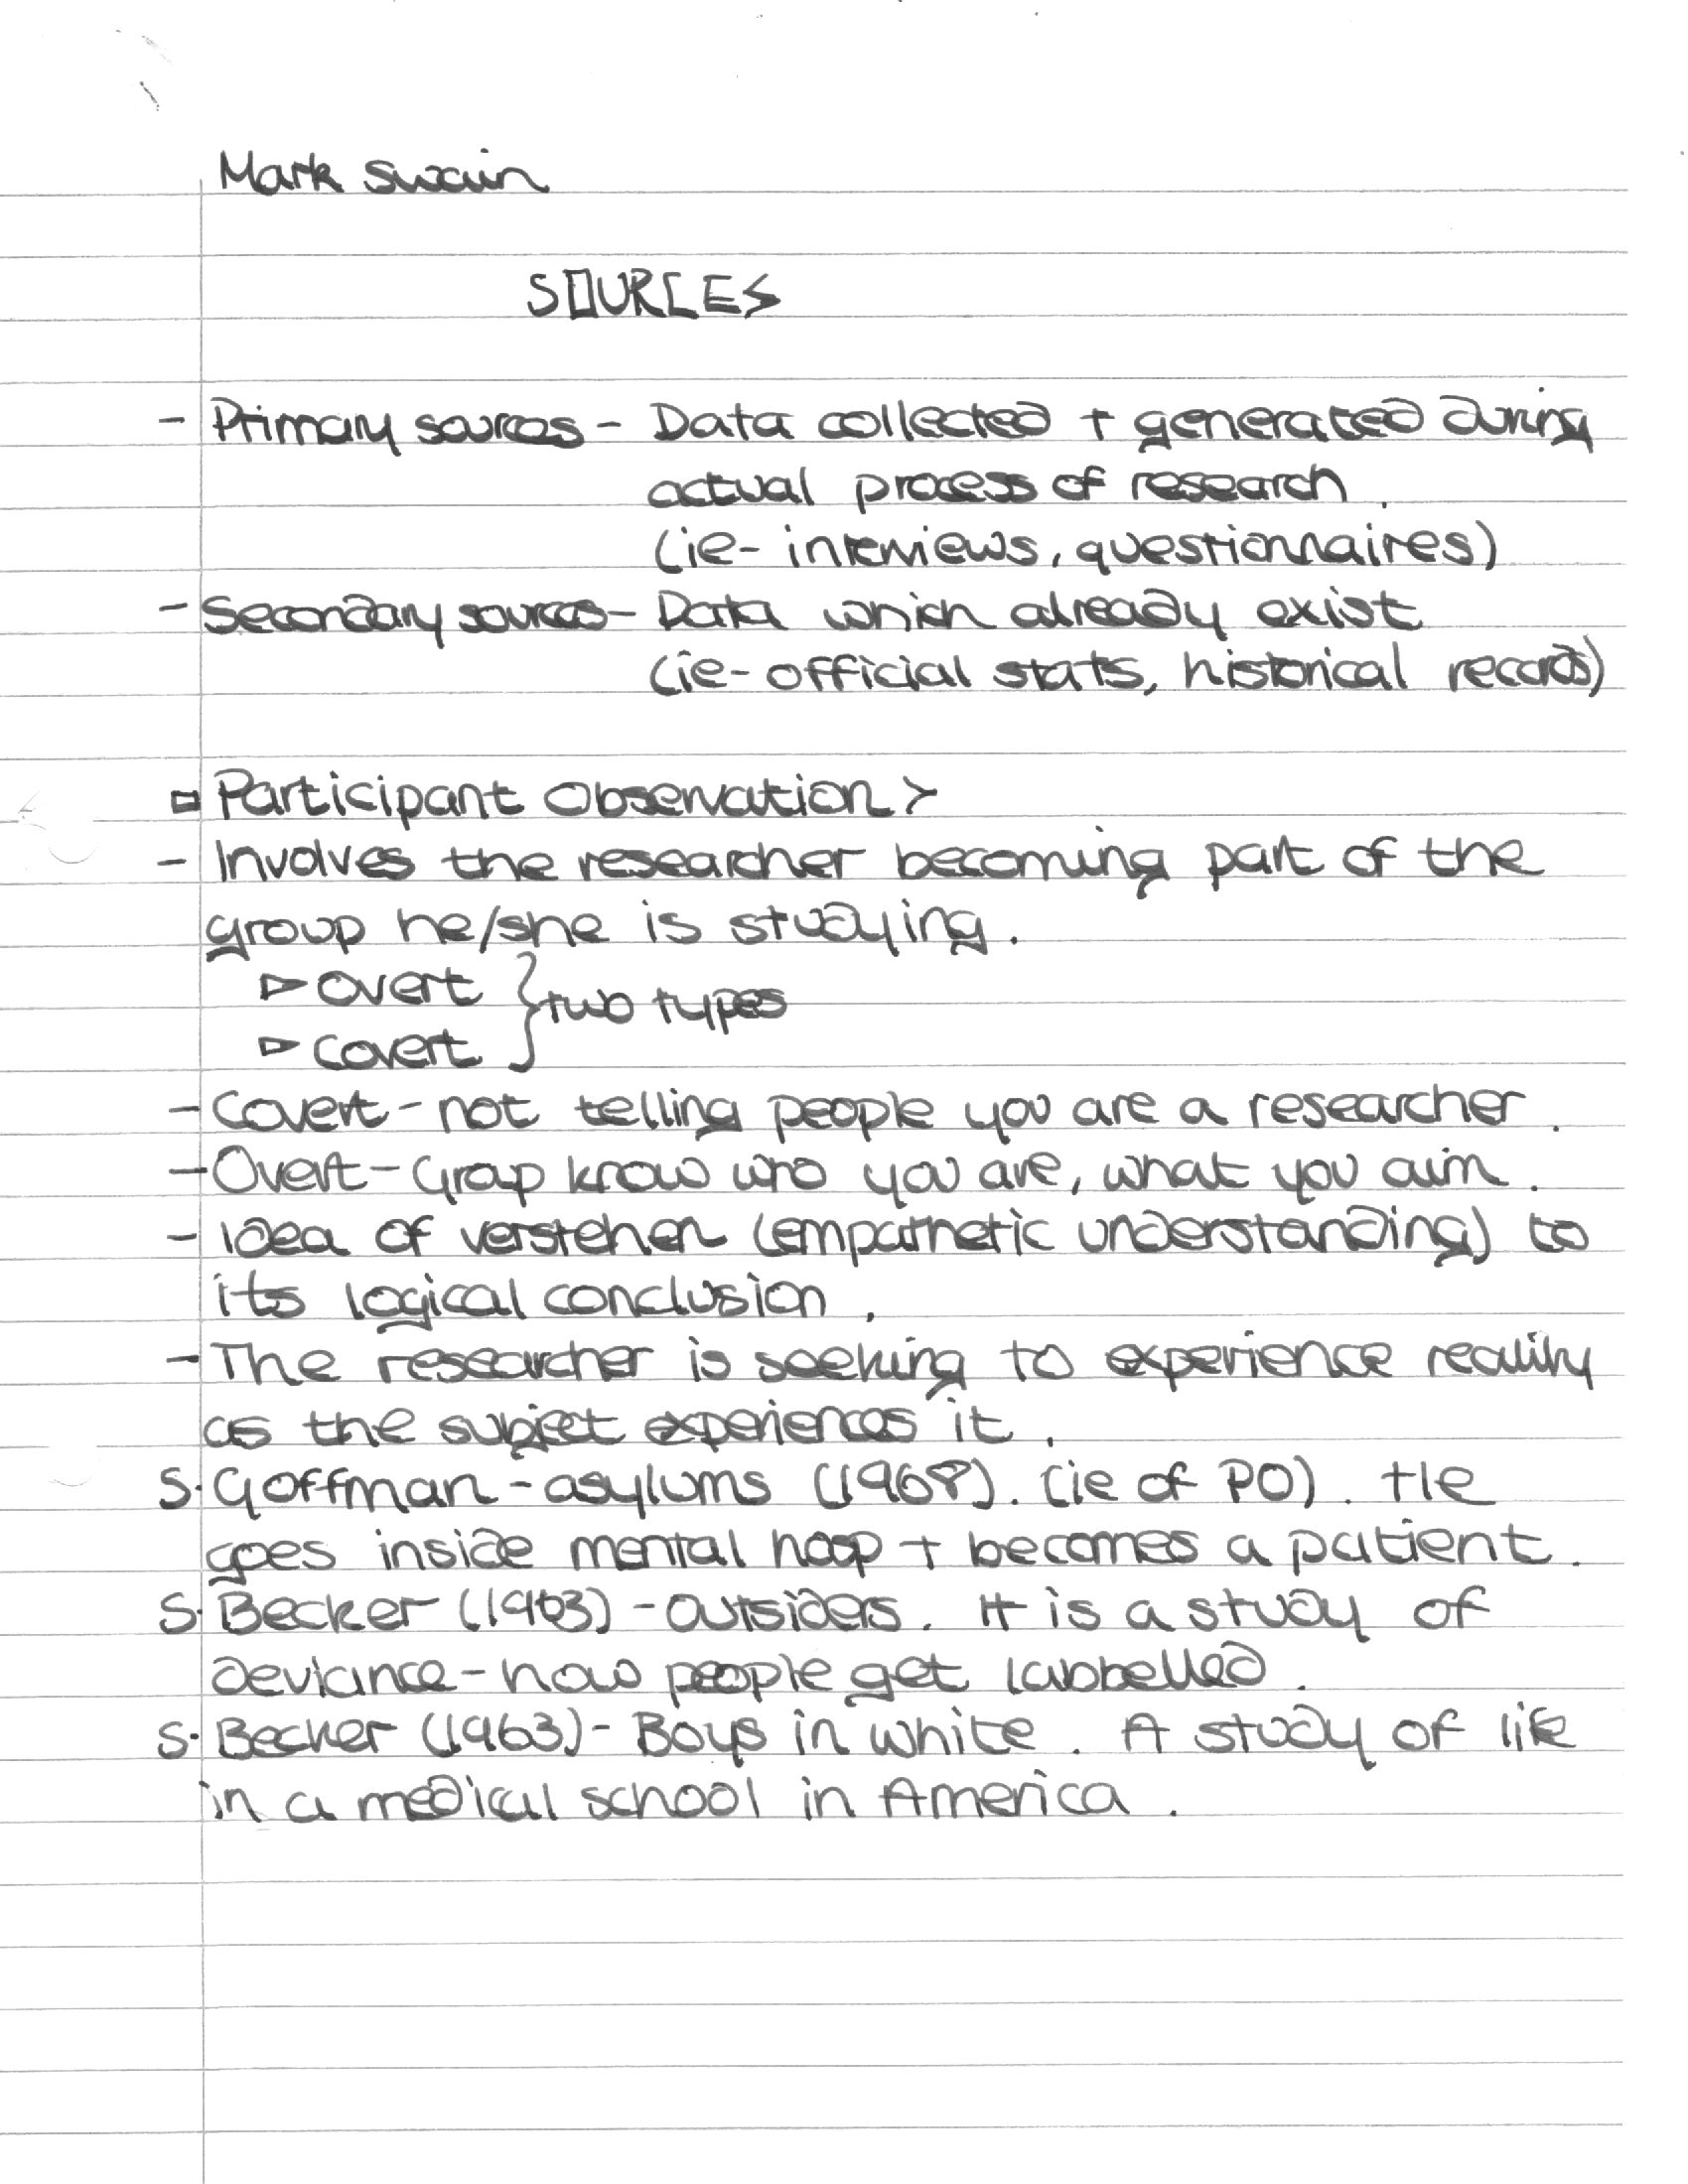 Mark Swain
SOURCES
- Primary sources - Data collected + generated during
actual process of research.
(ie- interviews, questionnaires)
- Secondary sources - Data which already exist
(ie- official stats, historical records)
Participant Observation >
- Involves the researcher becoming part of the
group he/she is studying.
▷ Overt } two types
▷ Covert
- Covert - not telling people you are a researcher.
- Overt - Group know who you are, what you aim.
- Idea of verstehen (empathetic understanding) to
its logical conclusion.
- The researcher is seeking to experience reality
as the subject experiences it.
S. Goffman - asylums (1968). (ie of PO). He
goes inside mental hosp + becomes a patient.
S. Becker (1963) - outsiders. It is a study of
deviance - how people get labbelled.
S. Becker (1963) - Boys in white. A study of life
in a medical school in America.